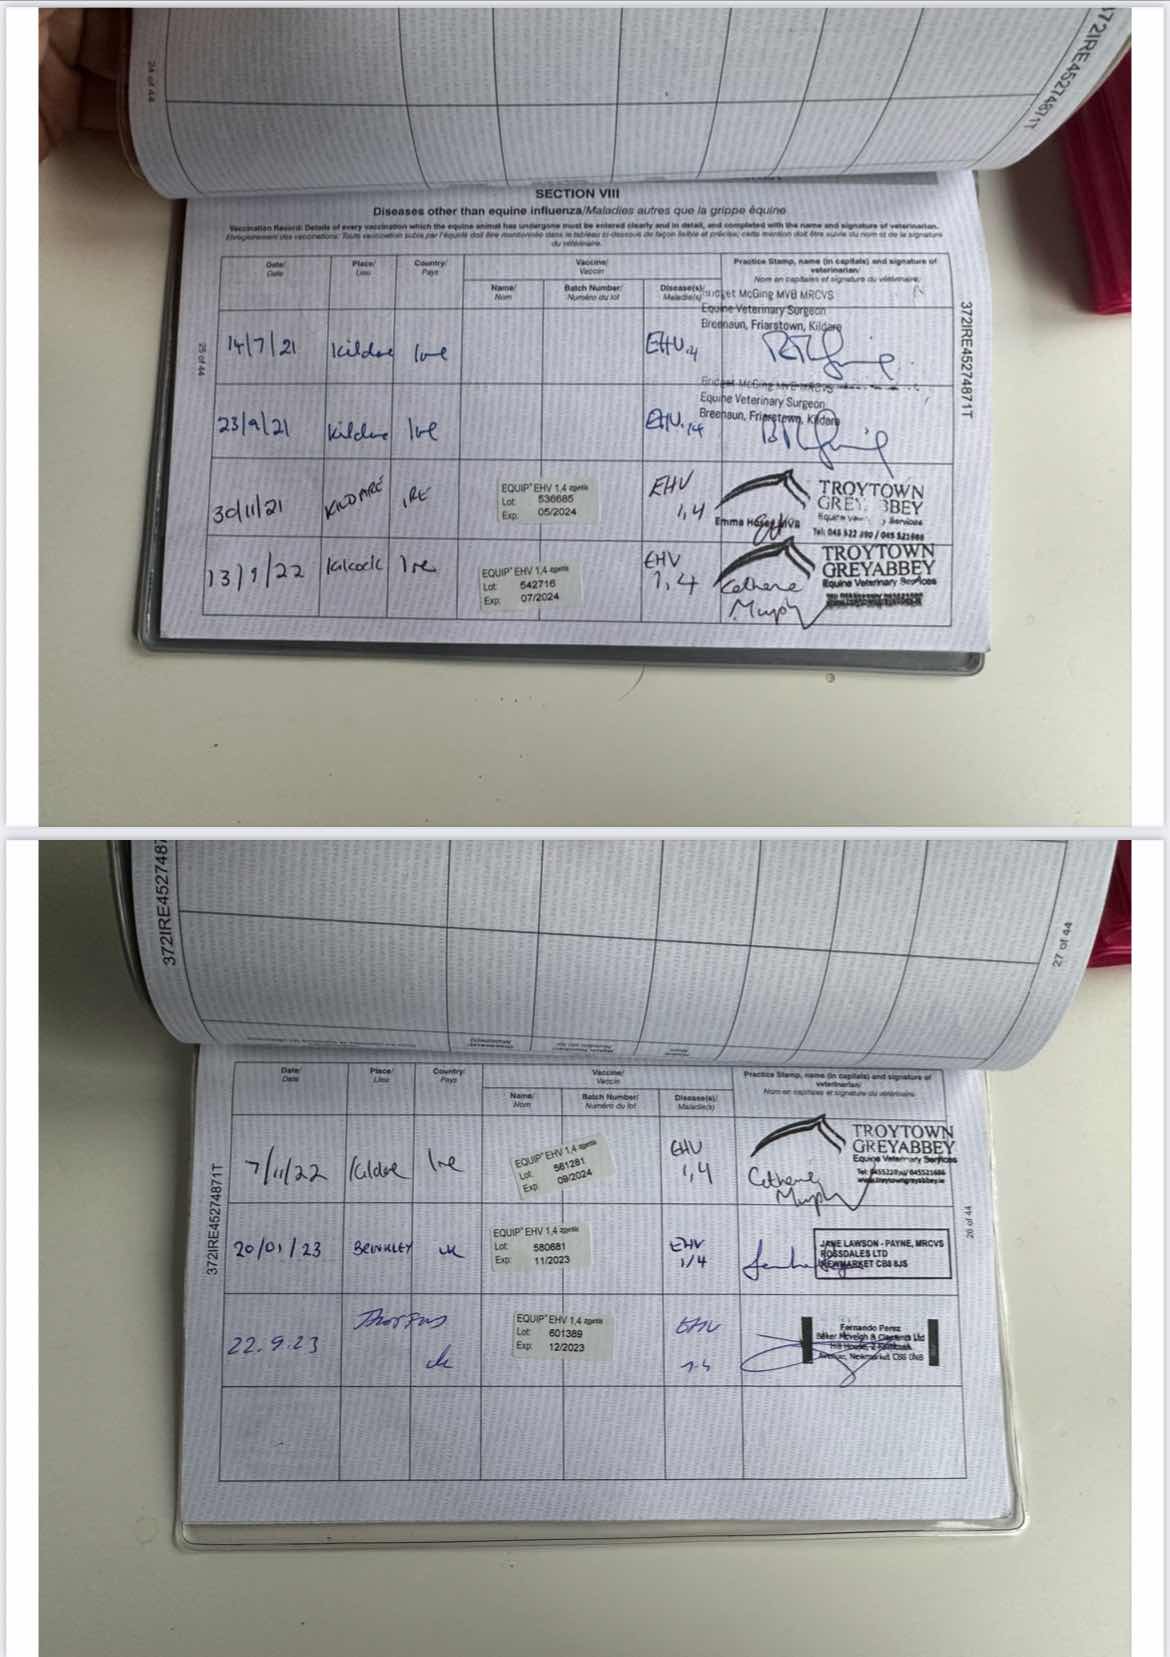 24 of 44
372IRE45274871T
SECTION VIII
Diseases other than equine influenza/Maladies autres que la grippe équine
Vaccination Record: Details of every vaccination which the equine animal has undergone must be entered clearly and in detail, and completed with the name and signature of veterinarian.
Enregistrement des vaccinations: Toute vaccination subie par l'équidé doit être mentionnée dans le tableau ci-dessous de façon lisible et précise; cette mention doit être suivie du nom et de la signature
du vétérinaire.
Date/ Place/ Country/ Vaccine/ Practice Stamp, name (in capitals) and signature of
Date Lieu Pays Vaccin veterinarian/
Nom en capitales et signature du vétérinaire
Name/ Batch Number/ Disease(s)/
Nom Numéro du lot Maladie(s)
25 of 44
372IRE45274871T
14/7/21 Kildare Ire EHV.4
Bridget McGing MVB MRCVS
Equine Veterinary Surgeon
Breenaun, Friarstown, Kildare
23/9/21 Kildare Ire EHV.14
Bridget McGing MVB MRCVS
Equine Veterinary Surgeon
Breenaun, Friarstown, Kildare
30/11/21 KILDARE IRE
EQUIP EHV 1,4 zoetis
Lot: 536685
Exp: 05/2024
EHV
1,4
TROYTOWN
GREYABBEY
Equine Veterinary Services
Tel: 045 522 890 / 045 521686
13/9/22 Kilcock Ire
EQUIP EHV 1,4 zoetis
Lot: 542716
Exp: 07/2024
EHV
1,4
TROYTOWN
GREYABBEY
Equine Veterinary Services
Catherine
Murphy
372IRE4527487
27 of 44
Date/ Place/ Country/ Vaccine/ Practice Stamp, name (in capitals) and signature of
Date Lieu Pays Vaccin veterinarian/
Nom en capitales et signature du vétérinaire
Name/ Batch Number/ Disease(s)/
Nom Numéro du lot Maladie(s)
372IRE45274871T
26 of 44
7/11/22 Kildare Ire
EQUIP EHV 1,4 zoetis
Lot: 561281
Exp: 09/2024
EHV
1,4
TROYTOWN
GREYABBEY
Equine Veterinary Services
www.troytowngreyabbey.ie
Catherine
Murphy
20/01/23 BRINKLEY UK
EQUIP EHV 1,4 zoetis
Lot: 580681
Exp: 11/2023
EHV
1/4
JANE LAWSON - PAYNE, MRCVS
ROSSDALES LTD
NEWMARKET CB8 8JS
22.9.23 UK
EQUIP EHV 1,4 zoetis
Lot: 601389
Exp: 12/2023
EHV
Fernando Perez
Baker Mcveigh & Clements Ltd
Avenue, Newmarket CB8